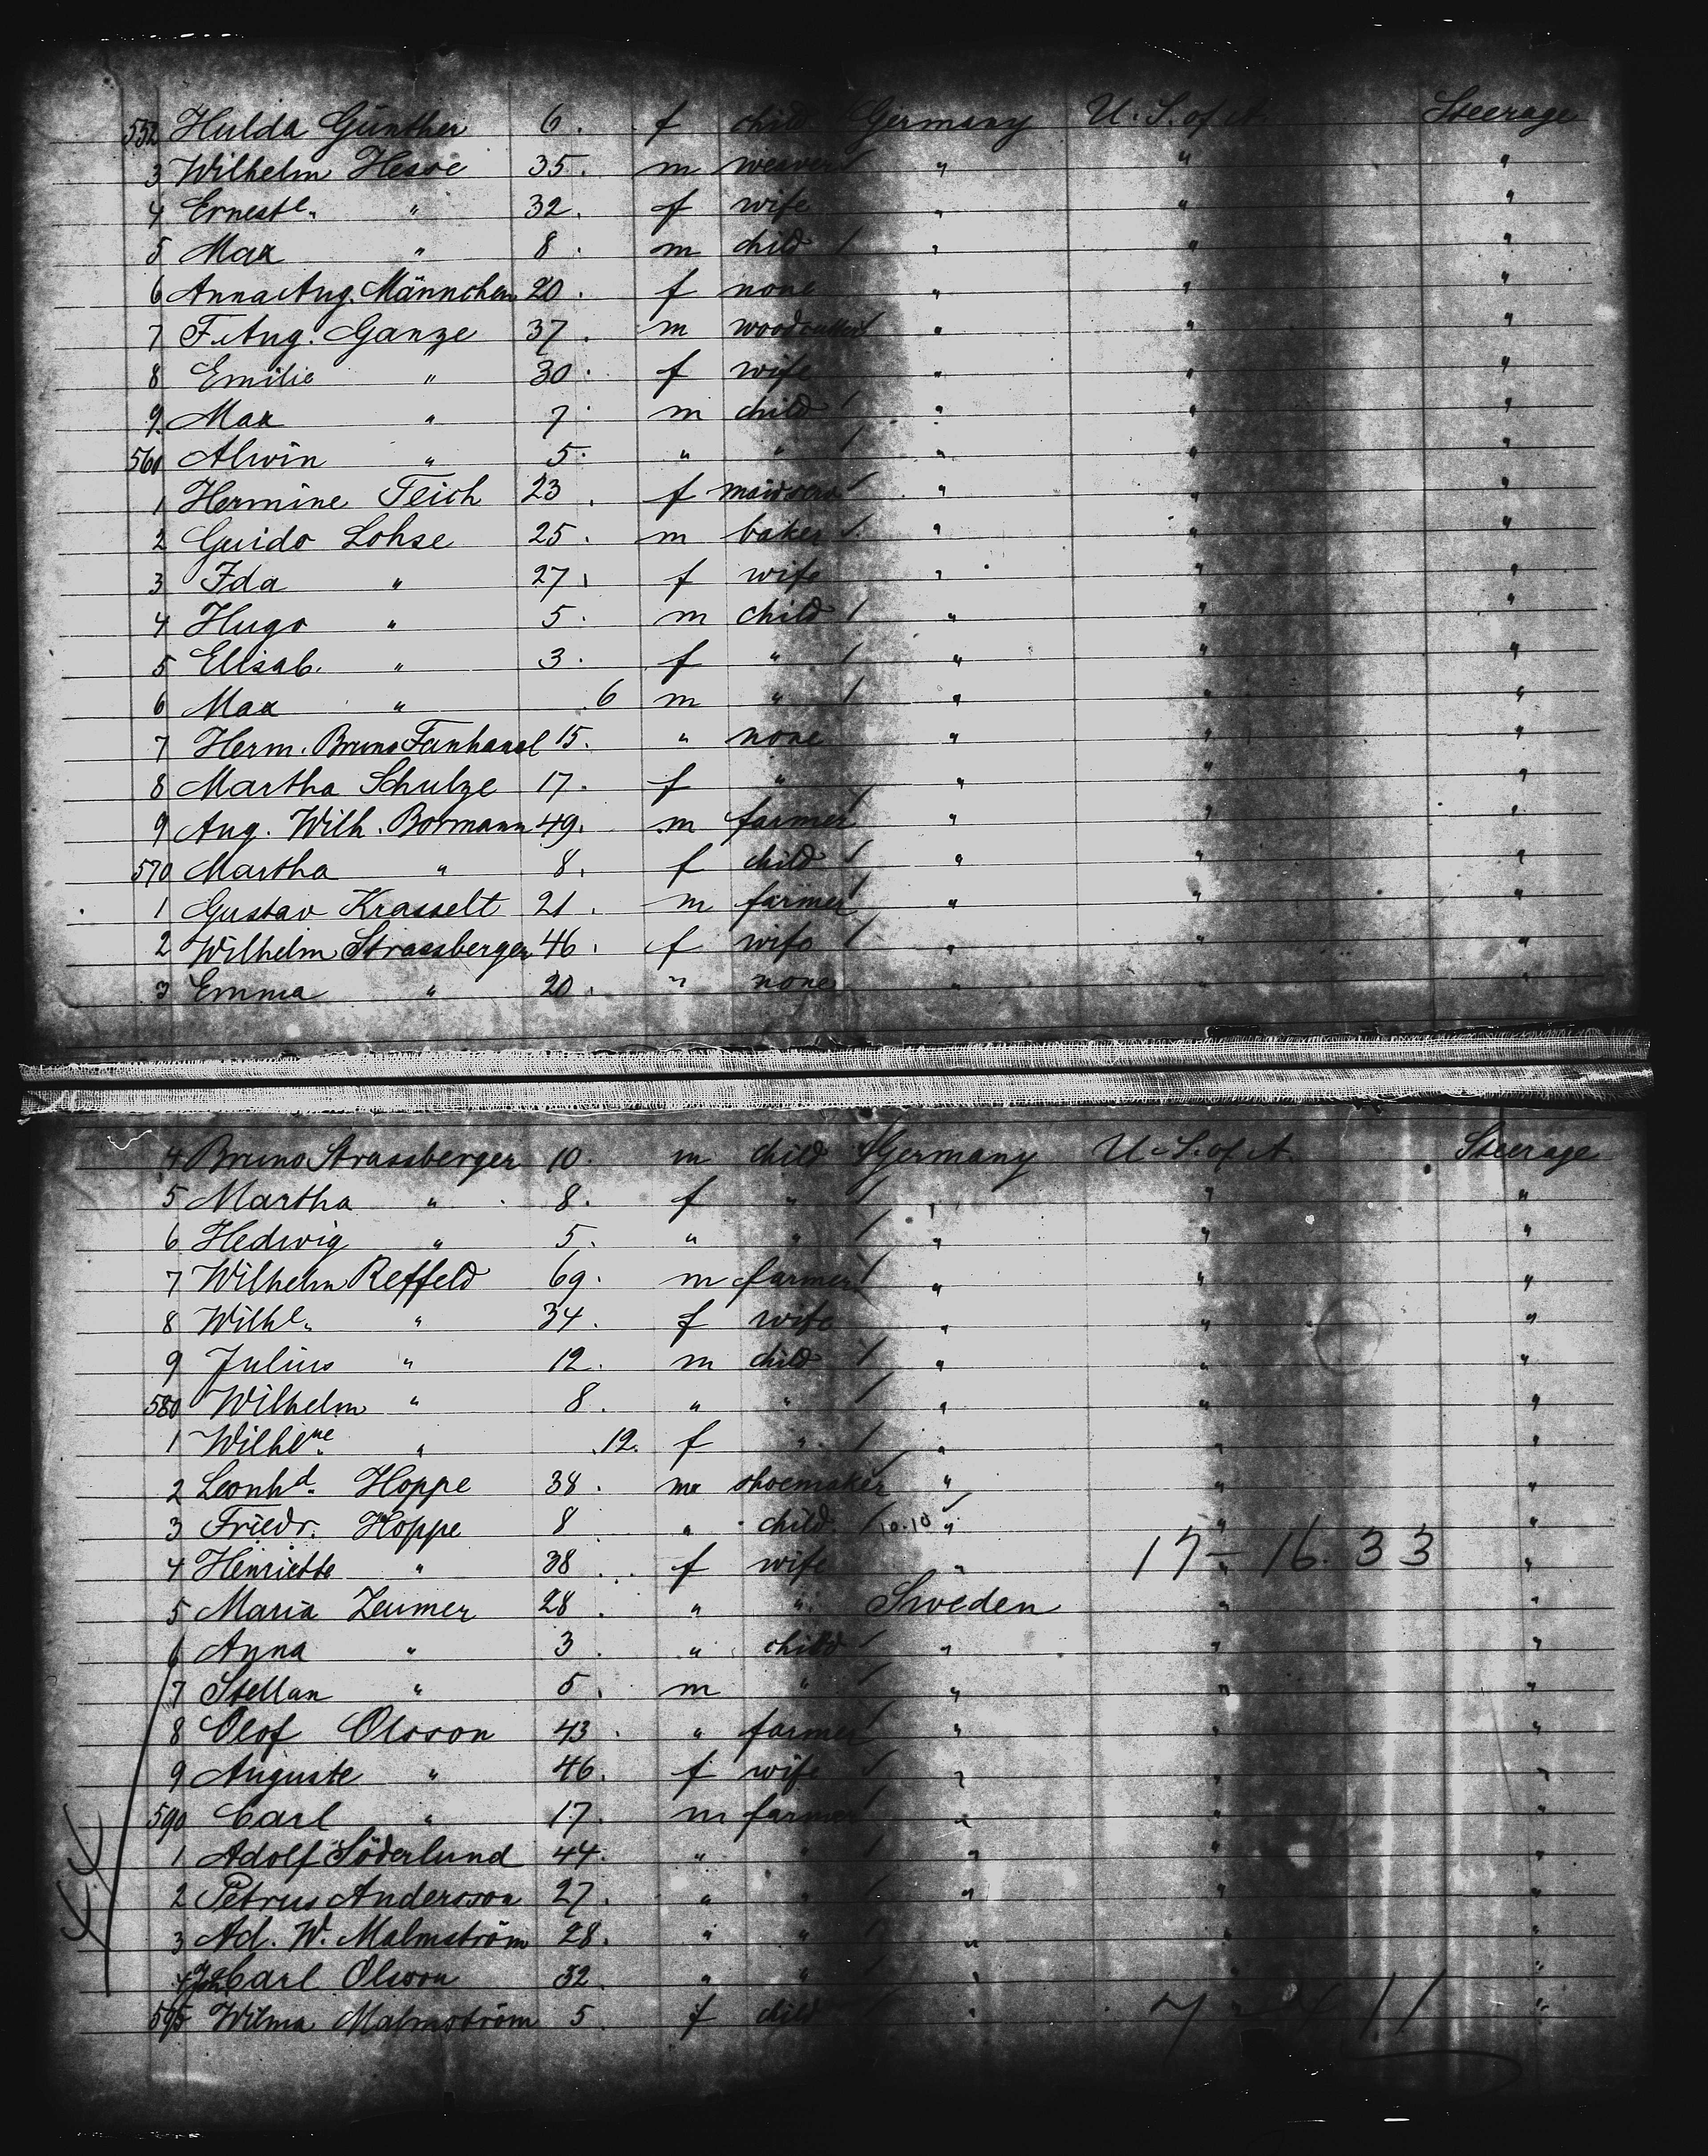 552 Hulda Günther 6. f child Germany U. S. of A. Steerage
3 Wilhelm Hesse 35. m weaver " " "
4 Ernestе. " 32. f wife " " "
5 Max " 8. m child " " "
6 Anna Aug. Männchen 20. f none " " "
7 F. Aug. Ganze 37. m woodcutter " " "
8 Emilie " 30. f wife " " "
9. Max " 7. m child " " "
560 Alwin " 5. " " " " "
1 Hermine Teich 23. f maidserv. " " "
2 Guido Lohse 25. m baker " " "
3 Ida " 27. f wife " " "
4 Hugo " 5. m child " " "
5 Elisab. " 3. f " " " "
6 Max " .6 m " " " "
7 Herm. Bruno Fanhanel 15. " none " " "
8 Martha Schulze 17. f " " " "
9 Aug. Wilh. Bormann 49. m farmer " " "
570 Martha " 8. f child " " "
1 Gustav Krasselt 21. m farmer " " "
2 Wilhelm Strassberger 46. f wife " " "
3 Emma " 20. " none " " "
4 Bruno Strassberger 10. m child Germany U. S. of A. Steerage
5 Martha " 8. f " " " "
6 Hedwig " 5. " " " " "
7 Wilhelm Reffeld 69. m farmer " " "
8 Wilhe. " 34. f wife " " "
9 Julius " 12. m child " " "
580 Wilhelm " 8. " " " " "
1 Wilhne. " .12. f " " " "
2 Leonhd. Hoppe 38. m shoemaker " " "
3 Friedr. Hoppe 8 " child 10.10 " " "
4 Henriette " 38. f wife " " "
17 - 16. 33
5 Maria Zeumer 28. " " Sweden " "
6 Anna " 3. " child " " "
7 Stellan " 5. m " " " "
8 Olof Olsson 43. " farmer " " "
9 Auguste " 46. f wife " " "
590 Carl " 17. m farmer " " "
1 Adolf Söderlund 44. " " " " "
2 Petrus Andersson 27. " " " " "
3 Ad. W. Malmström 28. " " " " "
4 Carl Olsson 32. " " " " "
595 Wilma Malmström 5. f child " "